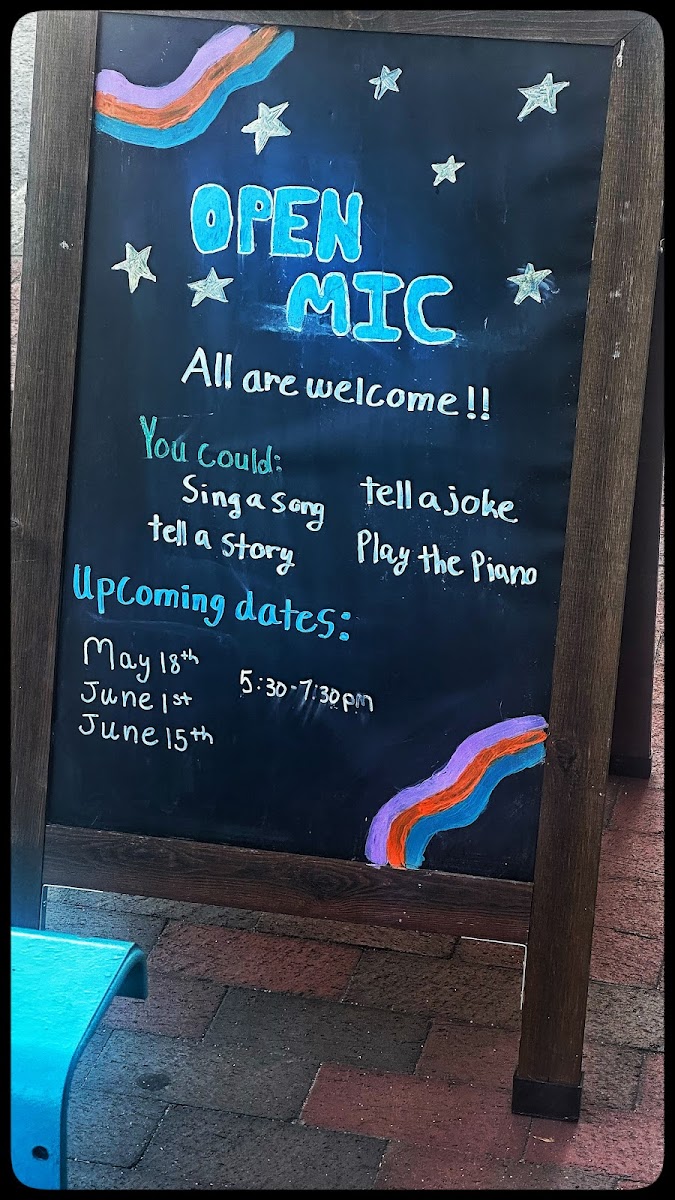 OPEN
MIC
All are welcome!!
You could:
Sing a song
tell a joke
tell a story
Play the Piano
Upcoming dates:
May 18th
June 1st
June 15th
5:30-7:30pm